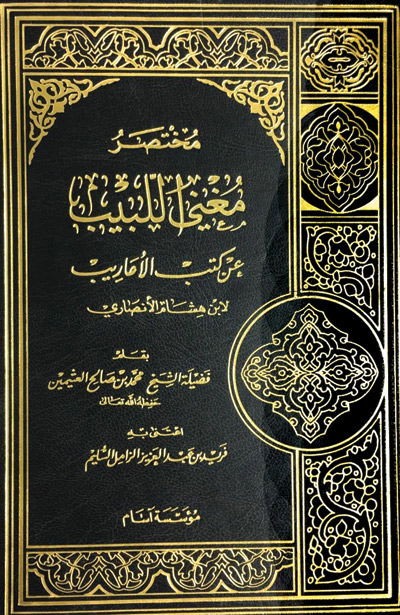 مُخْتَصَرُ
مُغْنِي اللَّبِيْب
عَنْ كُتُبِ الأعَارِيب
لابن هِشَام الأنصَاري
بقلم
فضيلة الشيخ محمد بن صالح العثيمين
حفظه الله تعالى
اعتنى به
فريد بن عبد العزيز الزامل السليم
مؤسسة آسام